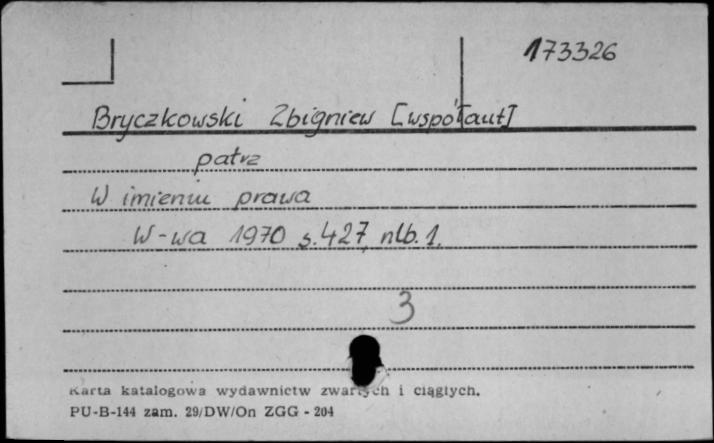 173326
Bryczkowski Zbigniew [współaut]
patrz
W imieniu prawa
W-wa 1970 s.427, nlb.1.
3
Karta katalogowa wydawnictw zwartych i ciągłych.
PU-B-144 zam. 29/DW/On ZGG - 204